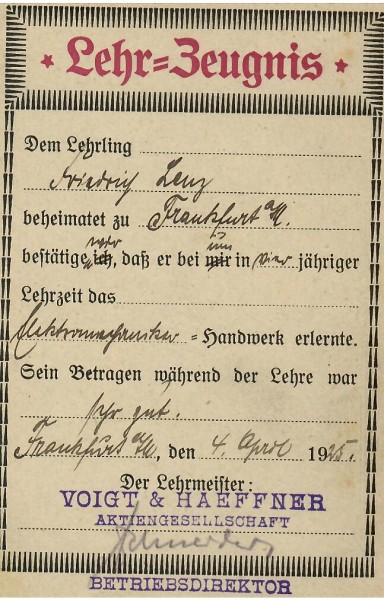 * Lehr=Zeugnis *
Dem Lehrling
Friedrich Lenz
beheimatet zu Frankfurt a/M.
wir uns
bestätige ich, daß er bei mir in vier jähriger
Lehrzeit das
Elektromechaniker = Handwerk erlernte.
Sein Betragen während der Lehre war
sehr gut.
Frankfurt a/M, den 4. April 1925.
Der Lehrmeister:
VOIGT & HAEFFNER
AKTIENGESELLSCHAFT
BETRIEBSDIREKTOR